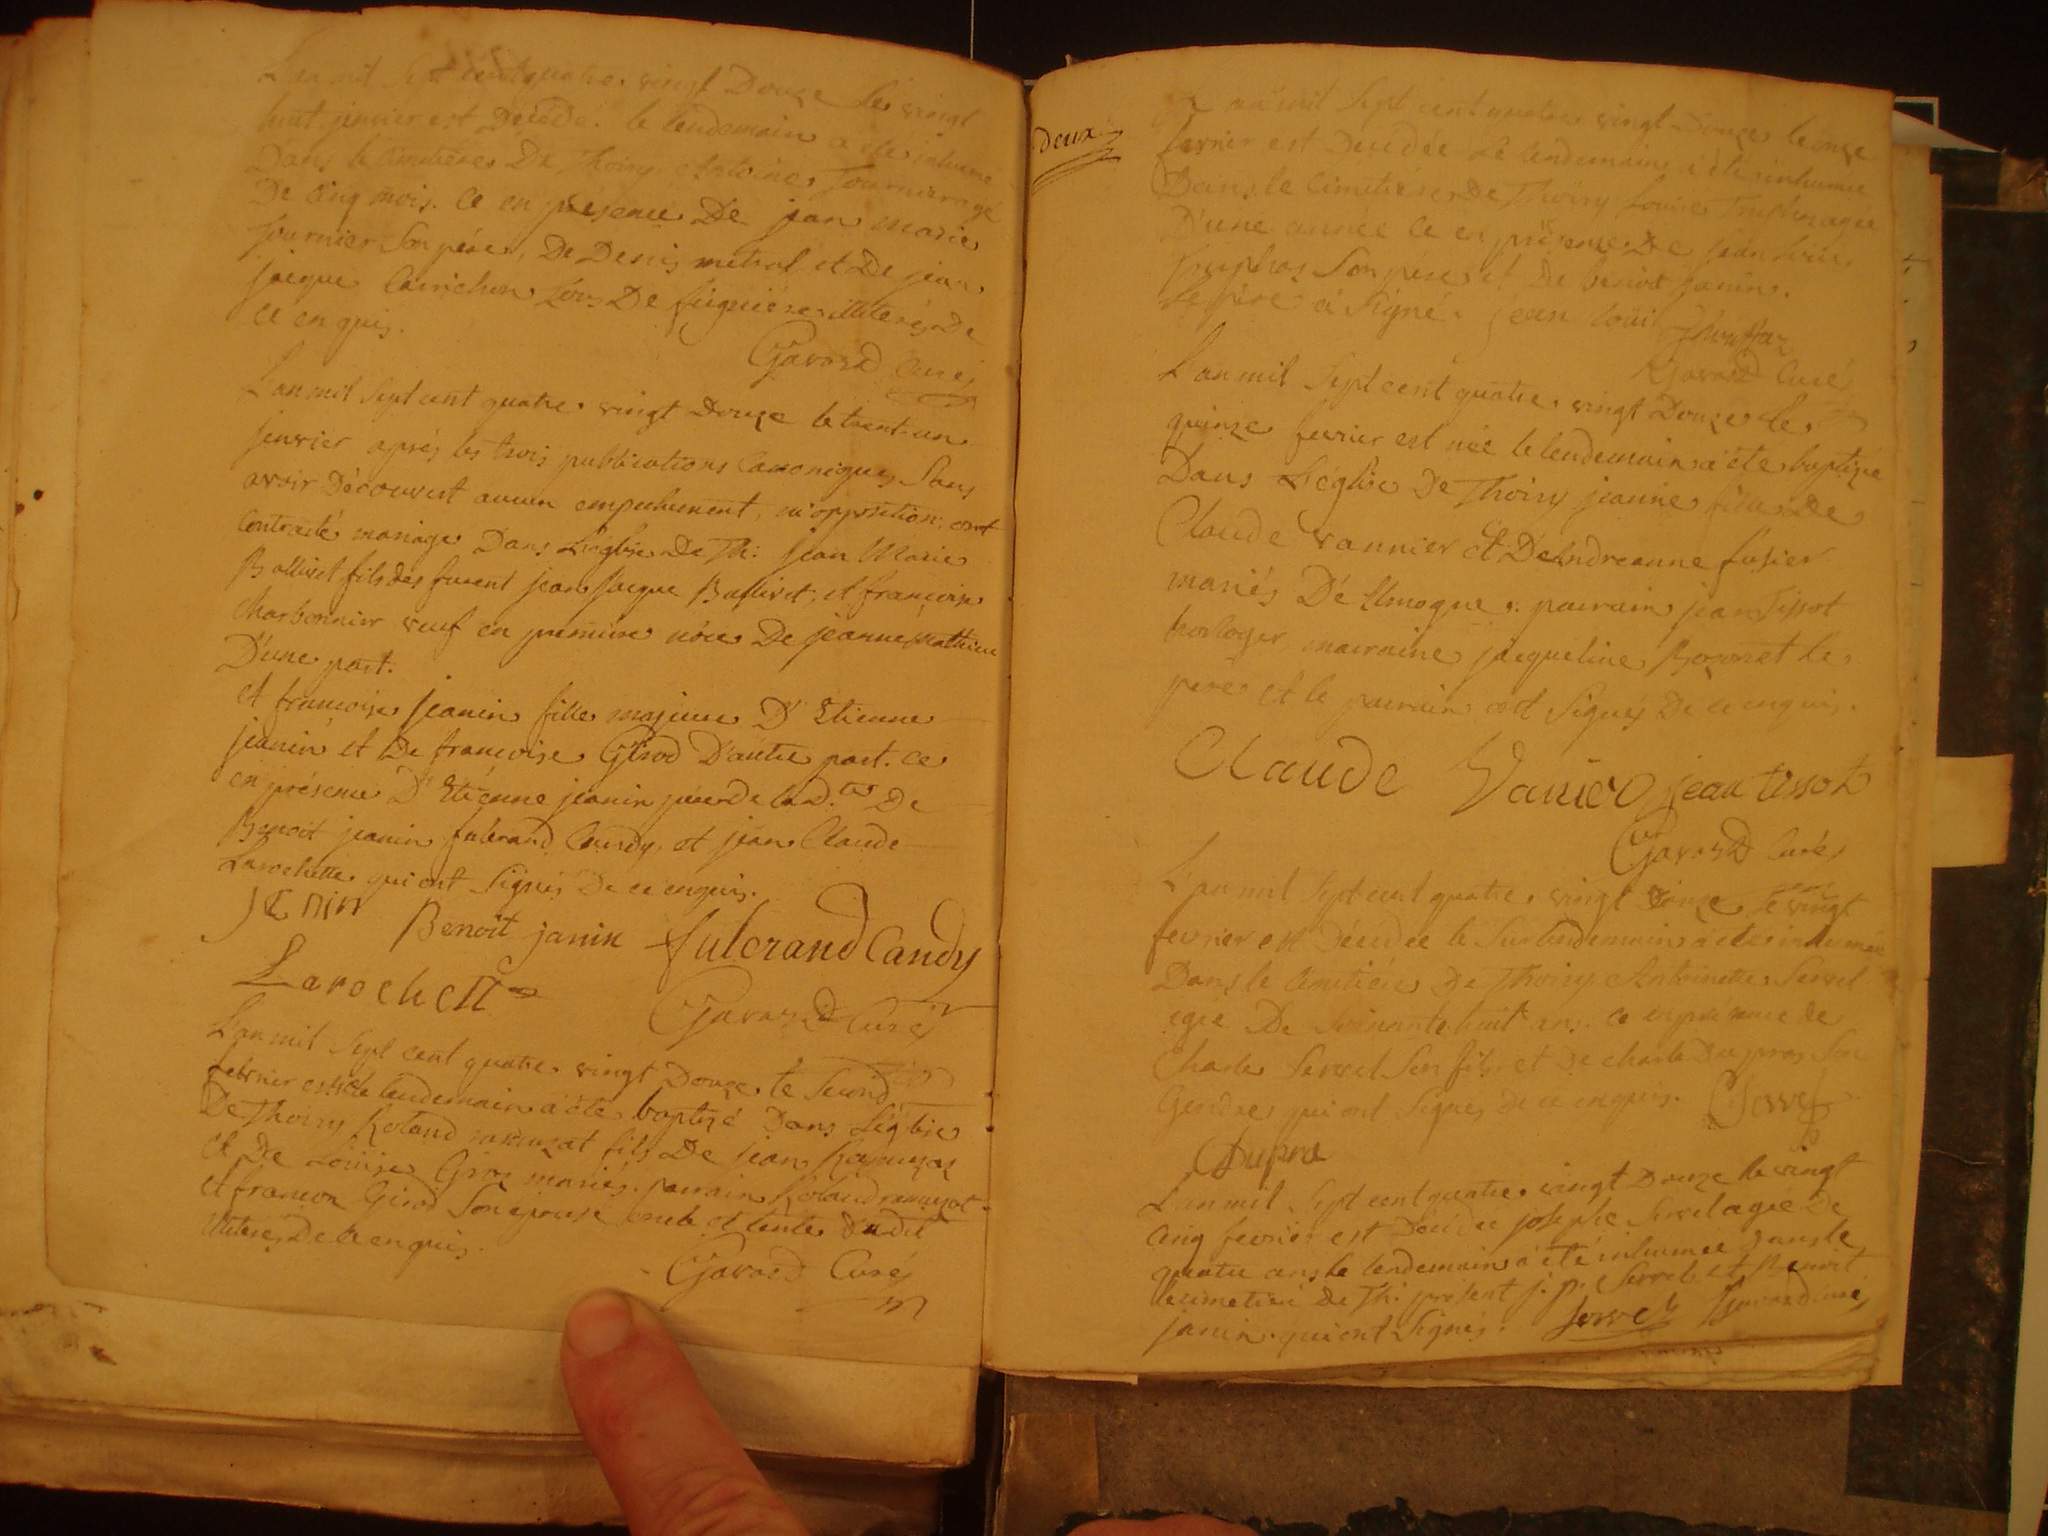 L'an mil Sept cent quatre vingt Douze le vingt
huit janvier est Décédé. le lendemain a été inhumé
Dans le Cimetière De Thoiry Antoine fournier agé
De Cinq mois. Ce en présence De jean marie
fournier Son père, De Denis metral et De jean
jacque illiterés De
Ce enquis.
Gavard Curé
L'an mil Sept cent quatre vingt Douze le trent un
janvier aprés les trois publications Canoniques Sans
avoir Découvert aucun empechement, ni opposition: ont
Contracté mariage Dans L'église De Th: Jean Marie
Ballivet fils des furent jean jacque Ballivet, et françoise
Charbonnier veuf en première nôce De jeanne Mathieu
D'une part.
et françoise jeanin fille majeure D'Etienne
jeanin et De françoise Girod D'autre part. Ce
en présence D'Etiénne jeanin pére de lad.te De
Benoit jeanin fulcrand Candy, et jean Claude
Larochette qui ont Signés De ce enquis.
Benoit janin fulcrand Candy
Larochette
Gavard Curé
L'an mil Sept cent quatre vingt Douze le Second
febvrier est né le lendemain a été baptisé Dans L'église
De Thoiry Roland ramuzat fils De jean Ramuzat
et De Loüise Gros mariés. parrain Roland ramuzat
et françon Girod Son epouse oncle et tante Dudit
illiterés De Ce enquis.
Gavard Curé
Deux
L'an mil Sept cent quatre vingt Douze le onze
fevrier est Decedée Le lendemain a été inhumée
Dans le Cimetière De Thoiry Louise agée
D'une année Ce en présence De jean Louis
Son père et De benoit janin.
Le père a Signé. jean loui
Gavard Curé
L'an mil Sept cent quatre vingt Douze le
quinze fevrier est née le lendemain a été baptisée
Dans L'église De Thoiry jeanne fille De
Claude vannier et De Andreanne fusier
mariés D'é parrain jean Tissot
horloger marraine jacqueline le
pere et le parrain ont Signés De ce enquis.
Claude Vanier jean tissot
Gavard Curé
L'an mil Sept cent quatre vingt Douze Le vingt
fevrier est Décédée le Surlendemain a été inhumée
Dans le Cimetière De Thoiry Antoinette Servel
agée De Soixante huit ans. Ce en présence de
Charle Servel Son fils et De charle Dupras Son
Gendre qui ont Signés De ce enquis. Servel
Dupra
L'an mil Sept cent quatre vingt Douze le vingt
Cinq fevrier est Décédée josephe Servel agée De
quatre ans Le lendemain a été inhumée Dans le
cimetiere De Th: présent j. p. Servel et Benoit
janin qui ont Signés. Servel Gavard curé